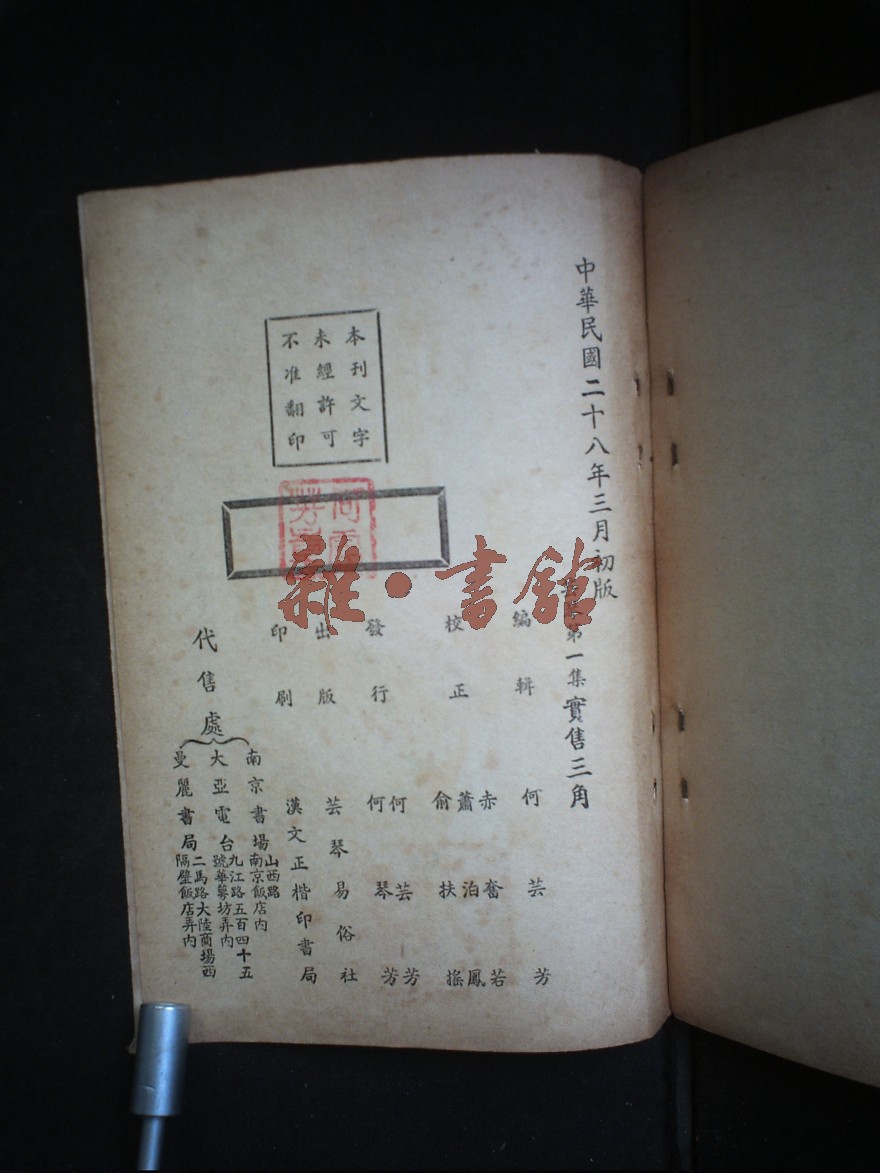 中華民國二十八年三月初版
第一集實售三角
編輯 何芸芳
校正 赤奮若
蕭泊鳳
俞扶搖
發行 何芸芳
何琴芳
出版 芸琴易俗社
印刷 漢文正楷印書局
代售處
南京書場 山西路南京飯店內
大亞電台 九江路五百四十五號華萼坊弄內
曼麗書局 二馬路大陸商場西隔壁飯店弄內
本刊文字
未經許可
不准翻印
雜·書館